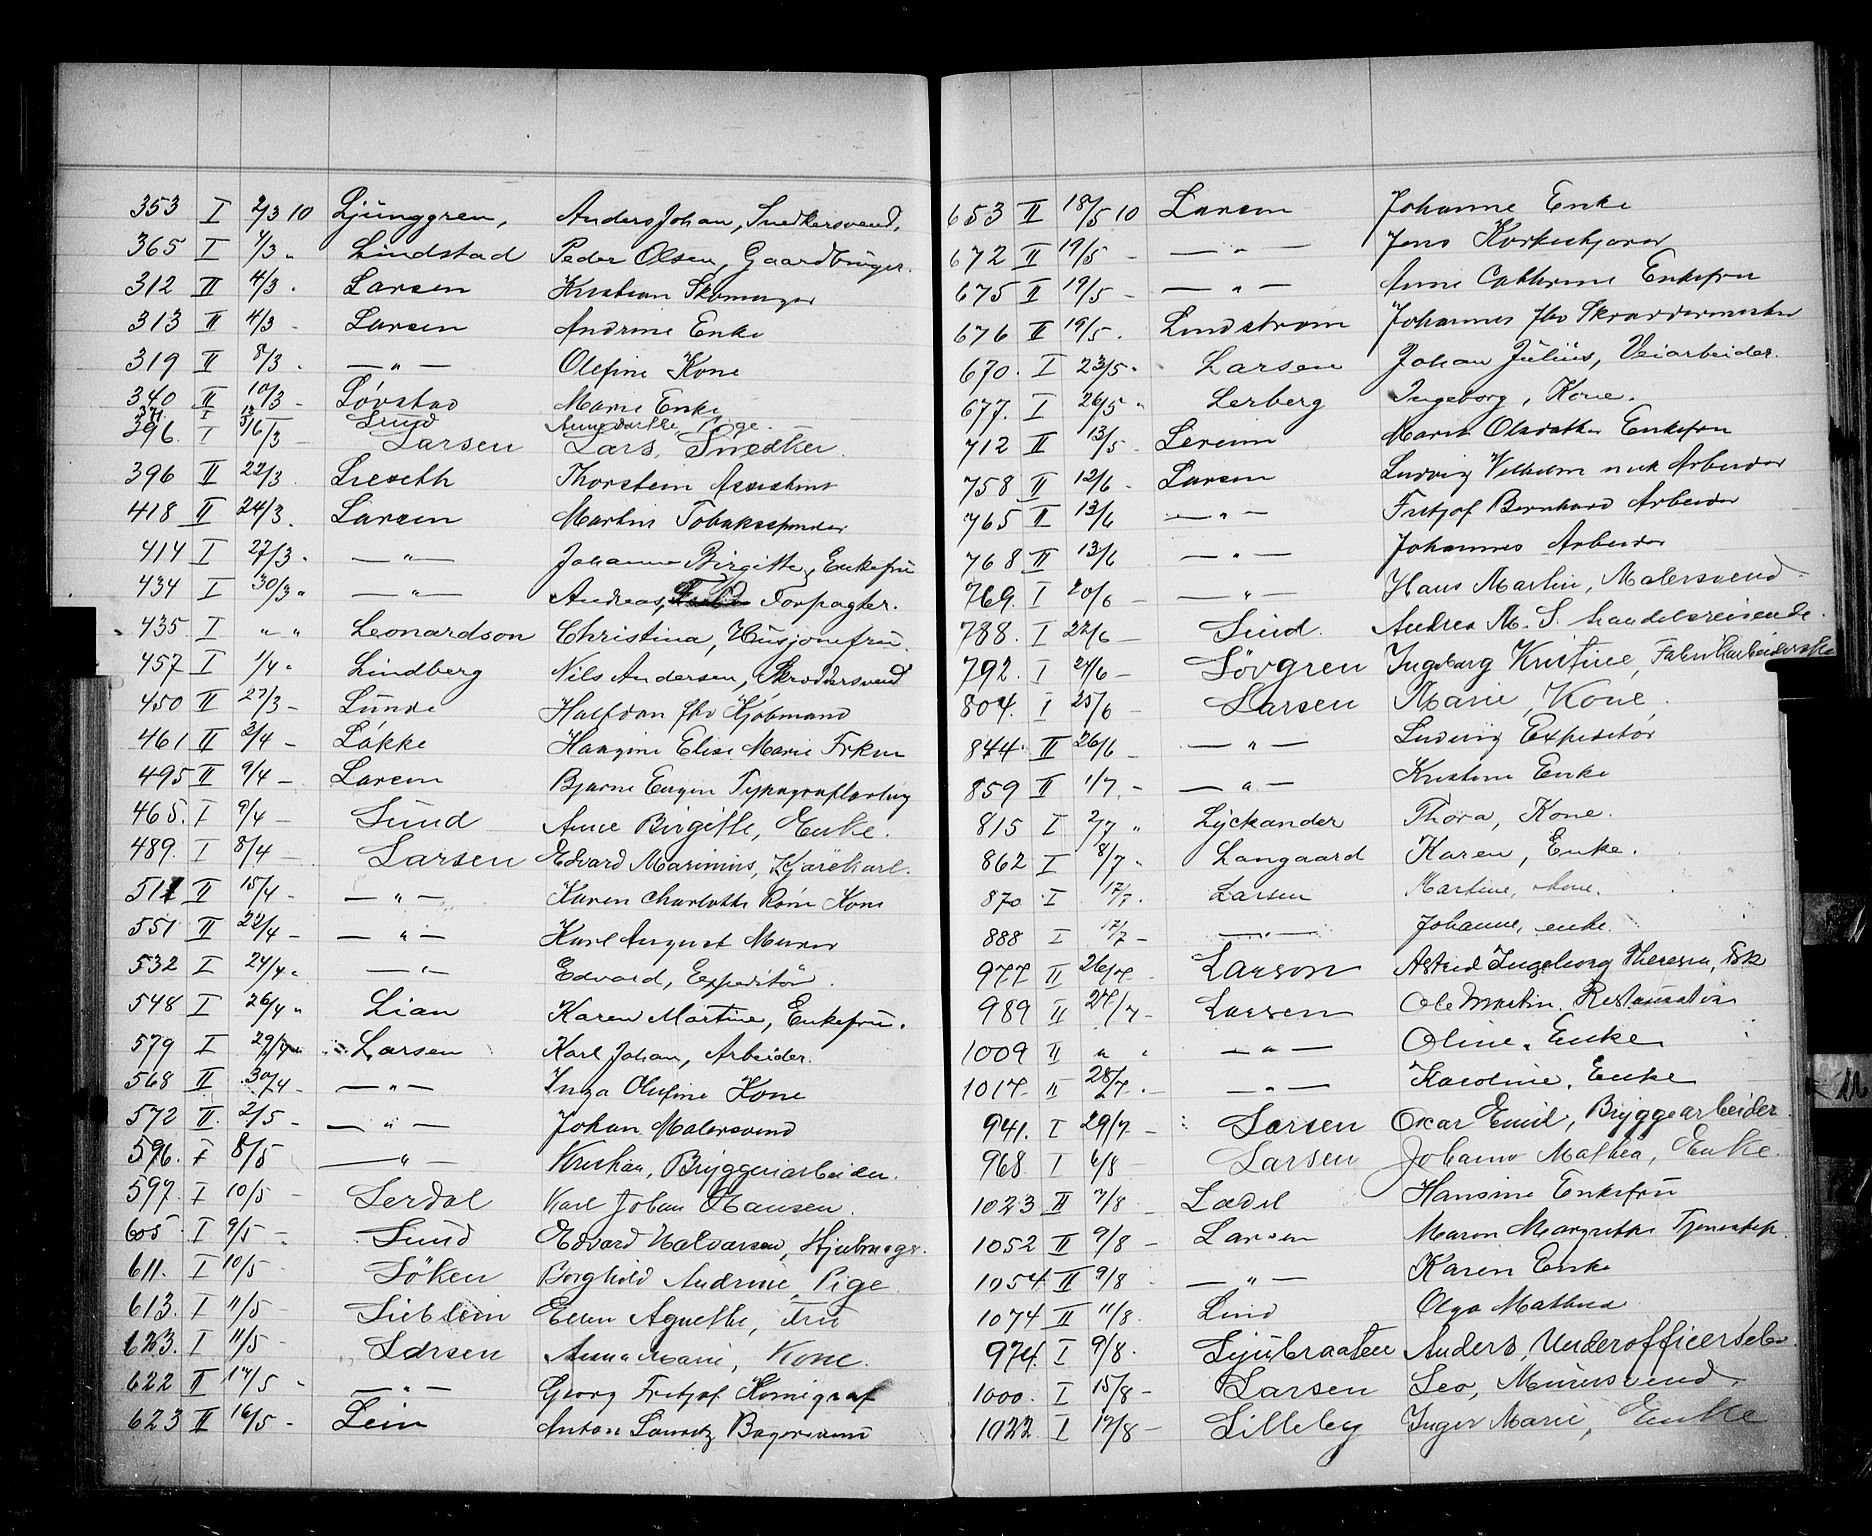 353 I 2/3 10 Ljunggren, Anders Johan, Snedkersvend,
365 I 4/3 " Lindstad Peder Olsen, Gaardbruger.
312 II 4/3 " Larsen Kristian Skomager
313 II 4/3 - Larsen Andrine Enke
319 II 8/3 - — " — Olefine Kone
340 II 10/3 - Løvstad Marie Enke
371. I Lund Anne Pige. —
396. I 16/3 Larsen Lars, Snedker.
396 II 22/3 Lieseth Thorstein Assistent
418 II 24/3 . Larsen Martin Tobaksspinder
414 I 27/3 " — " — Johanne Birgitte, Enkefru
434 I 30/3 " — " — Andreas, Forpagter.
435 I " " Leonardson Christina, Husjomfru.
457 I 1/4 " Lindberg Nils Andersen, Skræddersvend
450 II 27/3 - Lunde Halfdan fhv Kjøbmand
461 II 2/4 - Løkke Hangine Elise Marie Frkn
495 II 9/4 - Larsen Bjarne Eugen Typograflærling
465. I 9/4 - Lund Anne Birgitte, Enke.
489. I 8/4 - Larsen Edvard Marinius, Kjørekarl.
511 II 15/4 - — " — Karen Charlotte Kone
551 II 22/4 - — " — Karl August Murer
532 I 24/4 " — " — Edvard, Expeditør.
548 I 26/4 " Lian Karen Martine, Enkefru.
579 I 29/4 Larsen Karl Johan, Arbeider.
568 II 30/4 - — " — Inga Olufine Kone
572 II 2/5 - — " — Johan Malersvend
596. I 8/5 — " — Kristian, Bryggeriarbeider.
597. I 10/5 - Lerdal Karl Johan Hansen.
605 I 9/5 - Lund Edvard Halvorsen, Hjulmager.
611. I 10/5 - Løken Borghild Andrine, Pige
613. I 11/5 - Lieblein Ellen Agnethe, Fru
623. I 11/5 - Larsen Anna Marie, Kone.
622 II 14/5 " — " — Georg Fritjof Kemigraf
623 II 16/5 - Lein Anton Lauritz Bagersvend
653 II 18/5 10 Larsen Johanne Enke
672 II 19/5 - — " — Jens
675 II 19/5 - — " — Anne Cathrine Enkefru
676 II 19/5 . Lindstrøm Johannes fhv Skræddermester
670. I 23/5 " Larsen Johan Julius, Veiarbeider.
677. I 26/5 " Lerberg Ingeborg, Kone.
712 II 13/5 - Marit Olsdatter Enkefru
758 II 12/6 - Larsen Ludvig Vilhelm Arbeider
765 II 13/6 — " — Fritjof Bernhard Arbeider
768 II 13/6 — " — Johannes Arbeider
769. I 20/6 — " — Hans Martin, Malersvend.
788. I 22/6 - Lund. Andrea M. S. handelsreisende.
792. I 24/6 - Løvgren Ingeborg Kristine, Fabrikarbeiderske
804. I 25/6 - Larsen Marie, Kone,
844. II 26/6 - — " — Ludvig Expeditør
859 II 1/7 - — " — Kristine Enke
815 I 2/7 " Lyckander Thora, Kone.
862 I 8/7 " Langaard Karen, Enke.
870 I 12/7. Larsen Martine, kone.
888 I 12/7 - — " — Johanne, enke.
977 II 26/7 - Larson Astrid Ingeborg Theresia, Frk
989 II 27/7 - Larsen Ole Martin Restauratør
1009 II " " — " — Oline, Enke
1017 II 28/7 . — " — Karoline, Enke
941. I 29/7 - Larsen Oscar Emil, Bryggearbeider
968. I 6/8 Larsen Johanne Mathea, Enke.
1023 II 7/8 - Ladel Hansine Enkefru
1052 II 9/8 - Larsen Maren Margrethe Tjenestepi.
1054 II 9/8 . — " — Karen Enke
1074 II 11/8 . Lind Olga Mathea
974 I 9/8 . Ljubraaten Anders, Underofficerselev.
1000. I 15/8 - Larsen Leo, Murersvend.
1022. I 12/8 - Lilleby Inger Marie, Enke